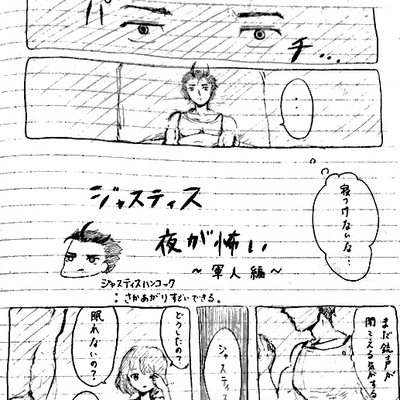 パ
チ…
…
寝つけないな…
ジャスティス
夜が怖い
～軍人編～
ジャスティスハンコック
：さかあがりすごいできる。
まだ銃声が
聞こえる気がする
ジャスティス
どうしたの？
眠れないの？